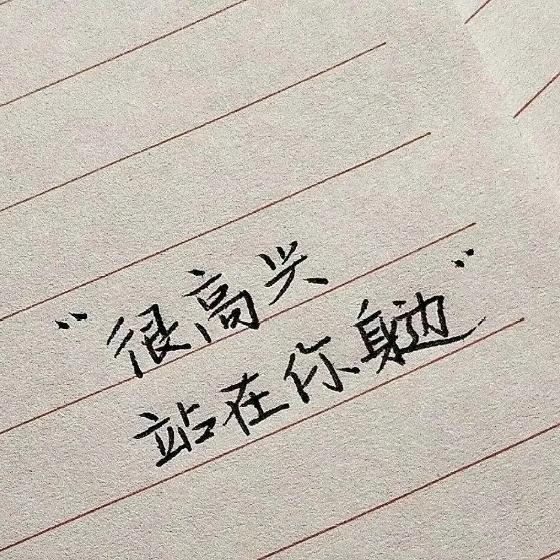 “很高兴
站在你身边”